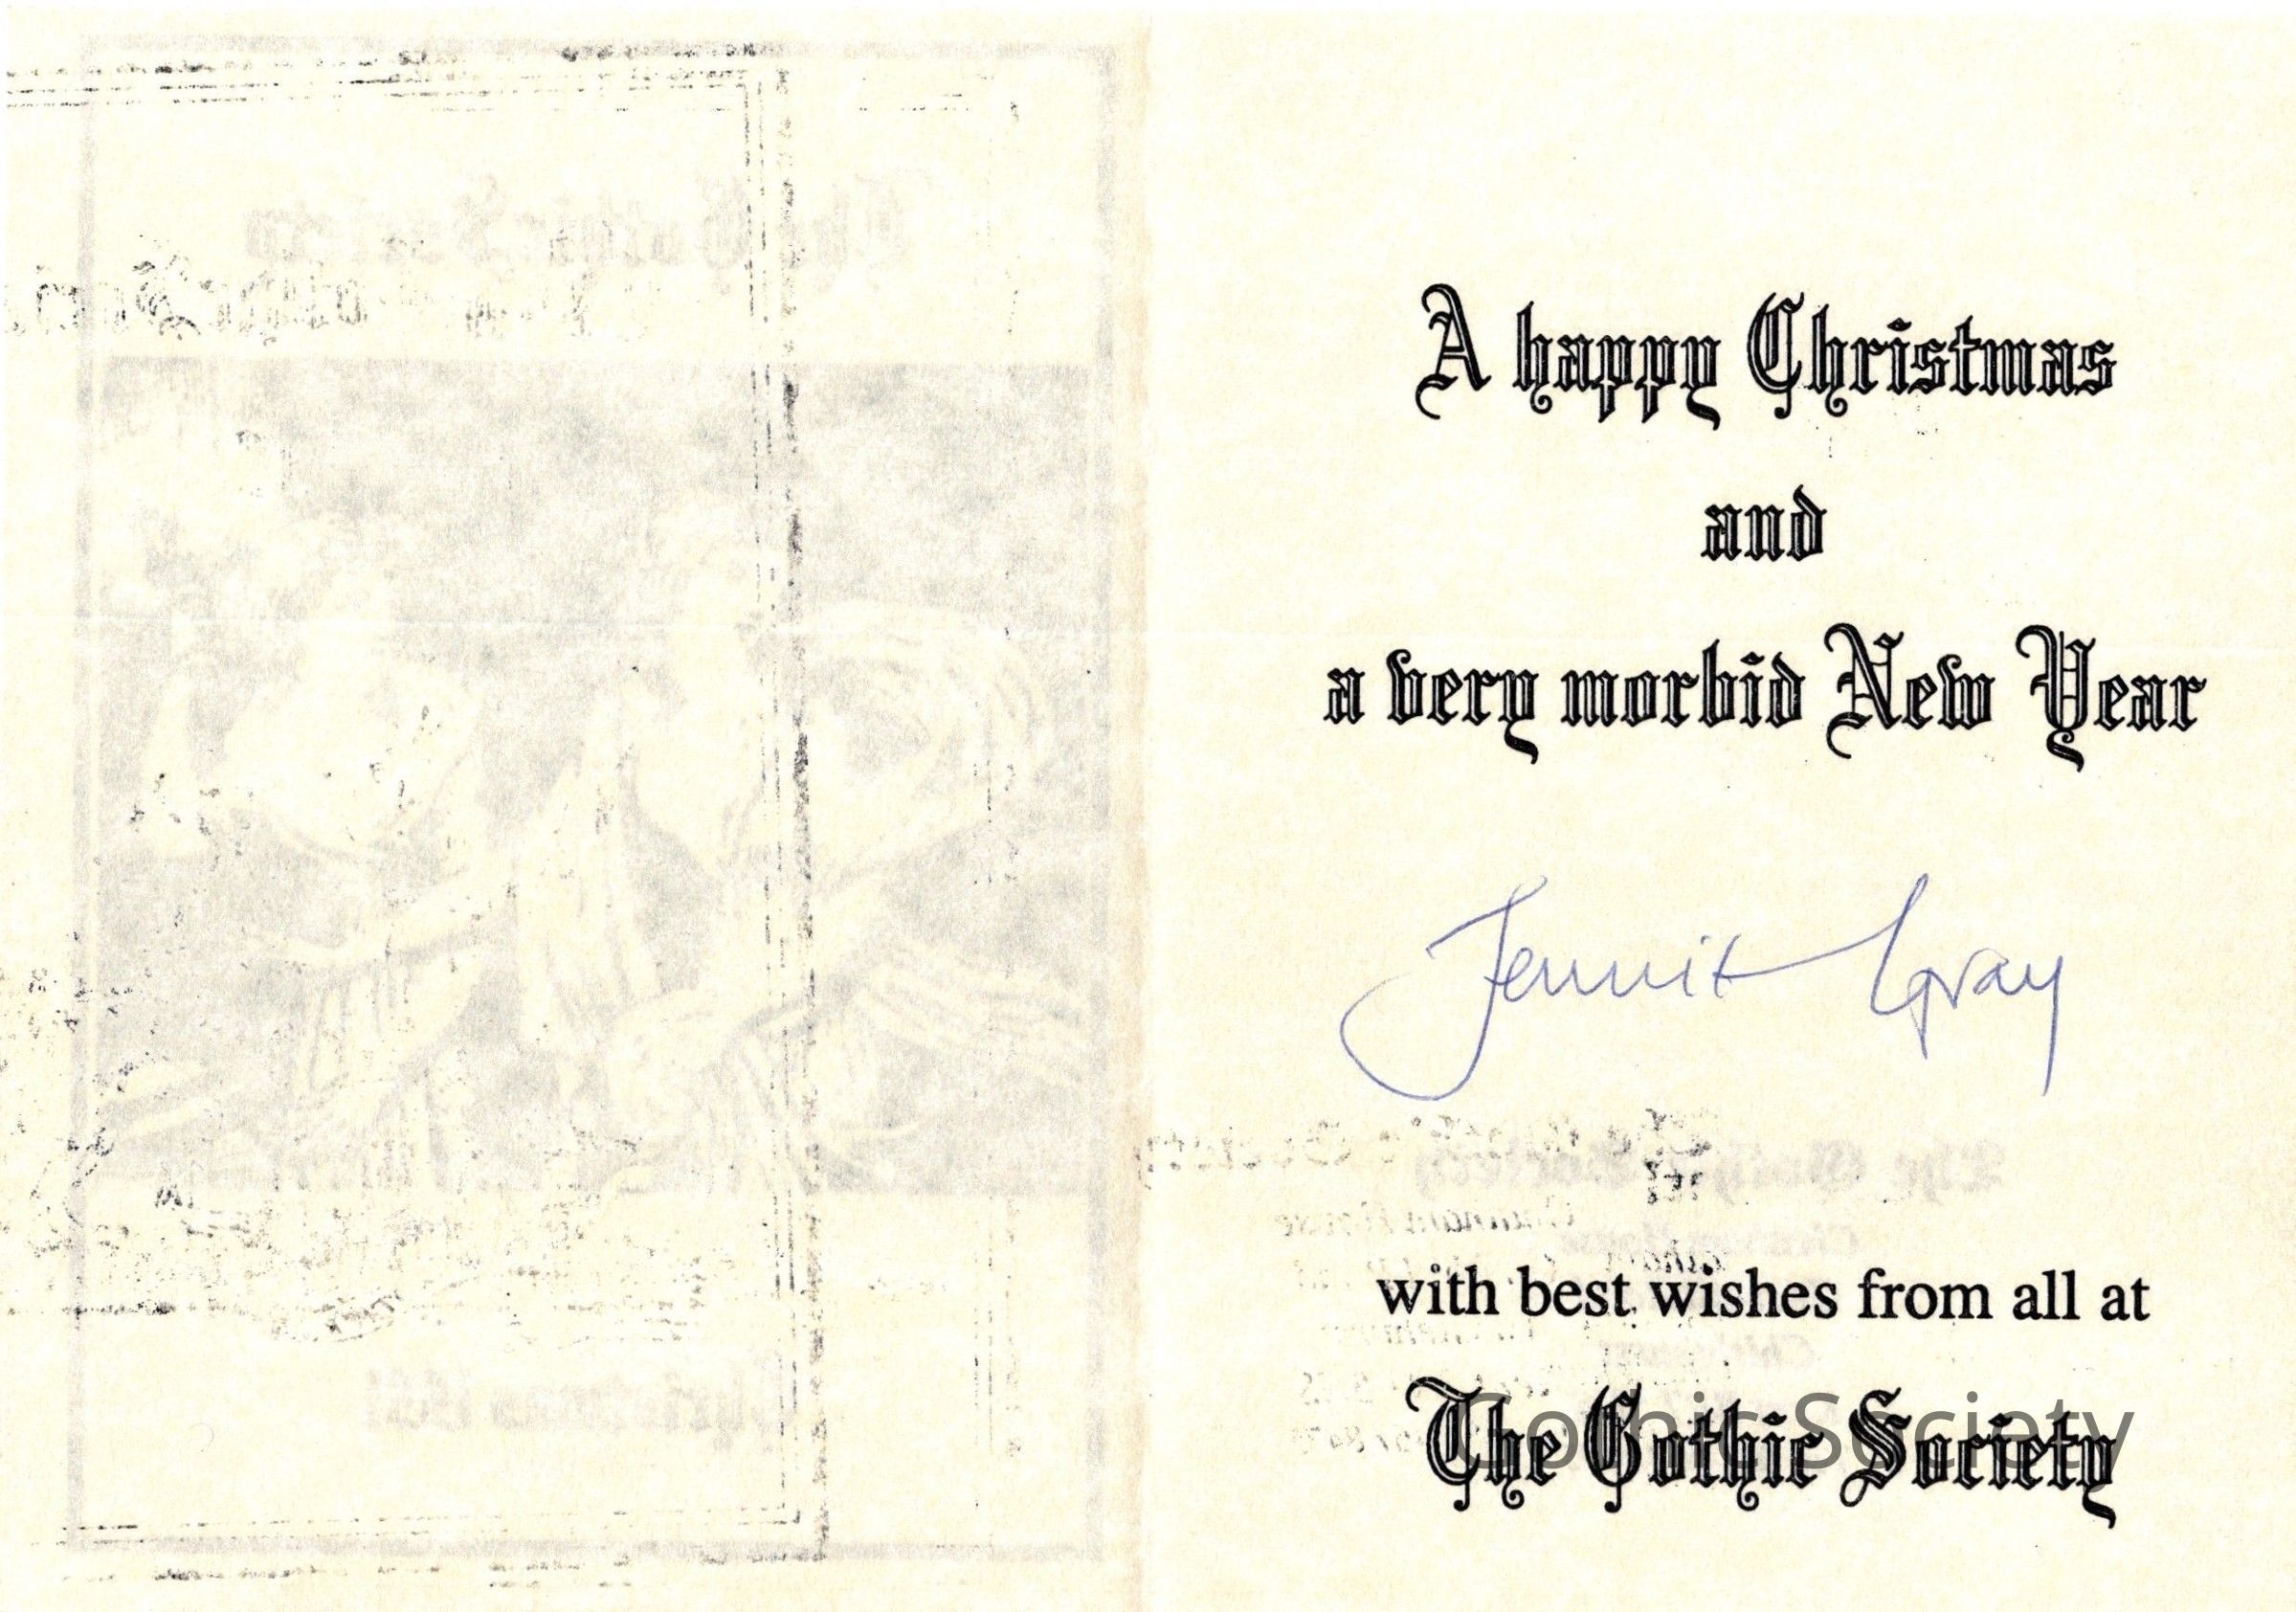 A happy Christmas
and
a very morbid New Year
Jennie Gray
with best wishes from all at
The Gothic Society
Gothic Society